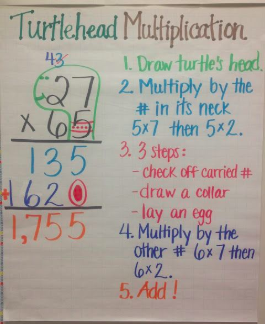 Turtlehead Multiplication
43
27
x 65
135
+ 1620
1,755
1. Draw turtle's head.
2. Multiply by the
# in its neck
5x7 then 5x2.
3. 3 steps:
- check off carried #
- draw a collar
- lay an egg
4. Multiply by the
other # 6x7 then
6x2.
5. Add!